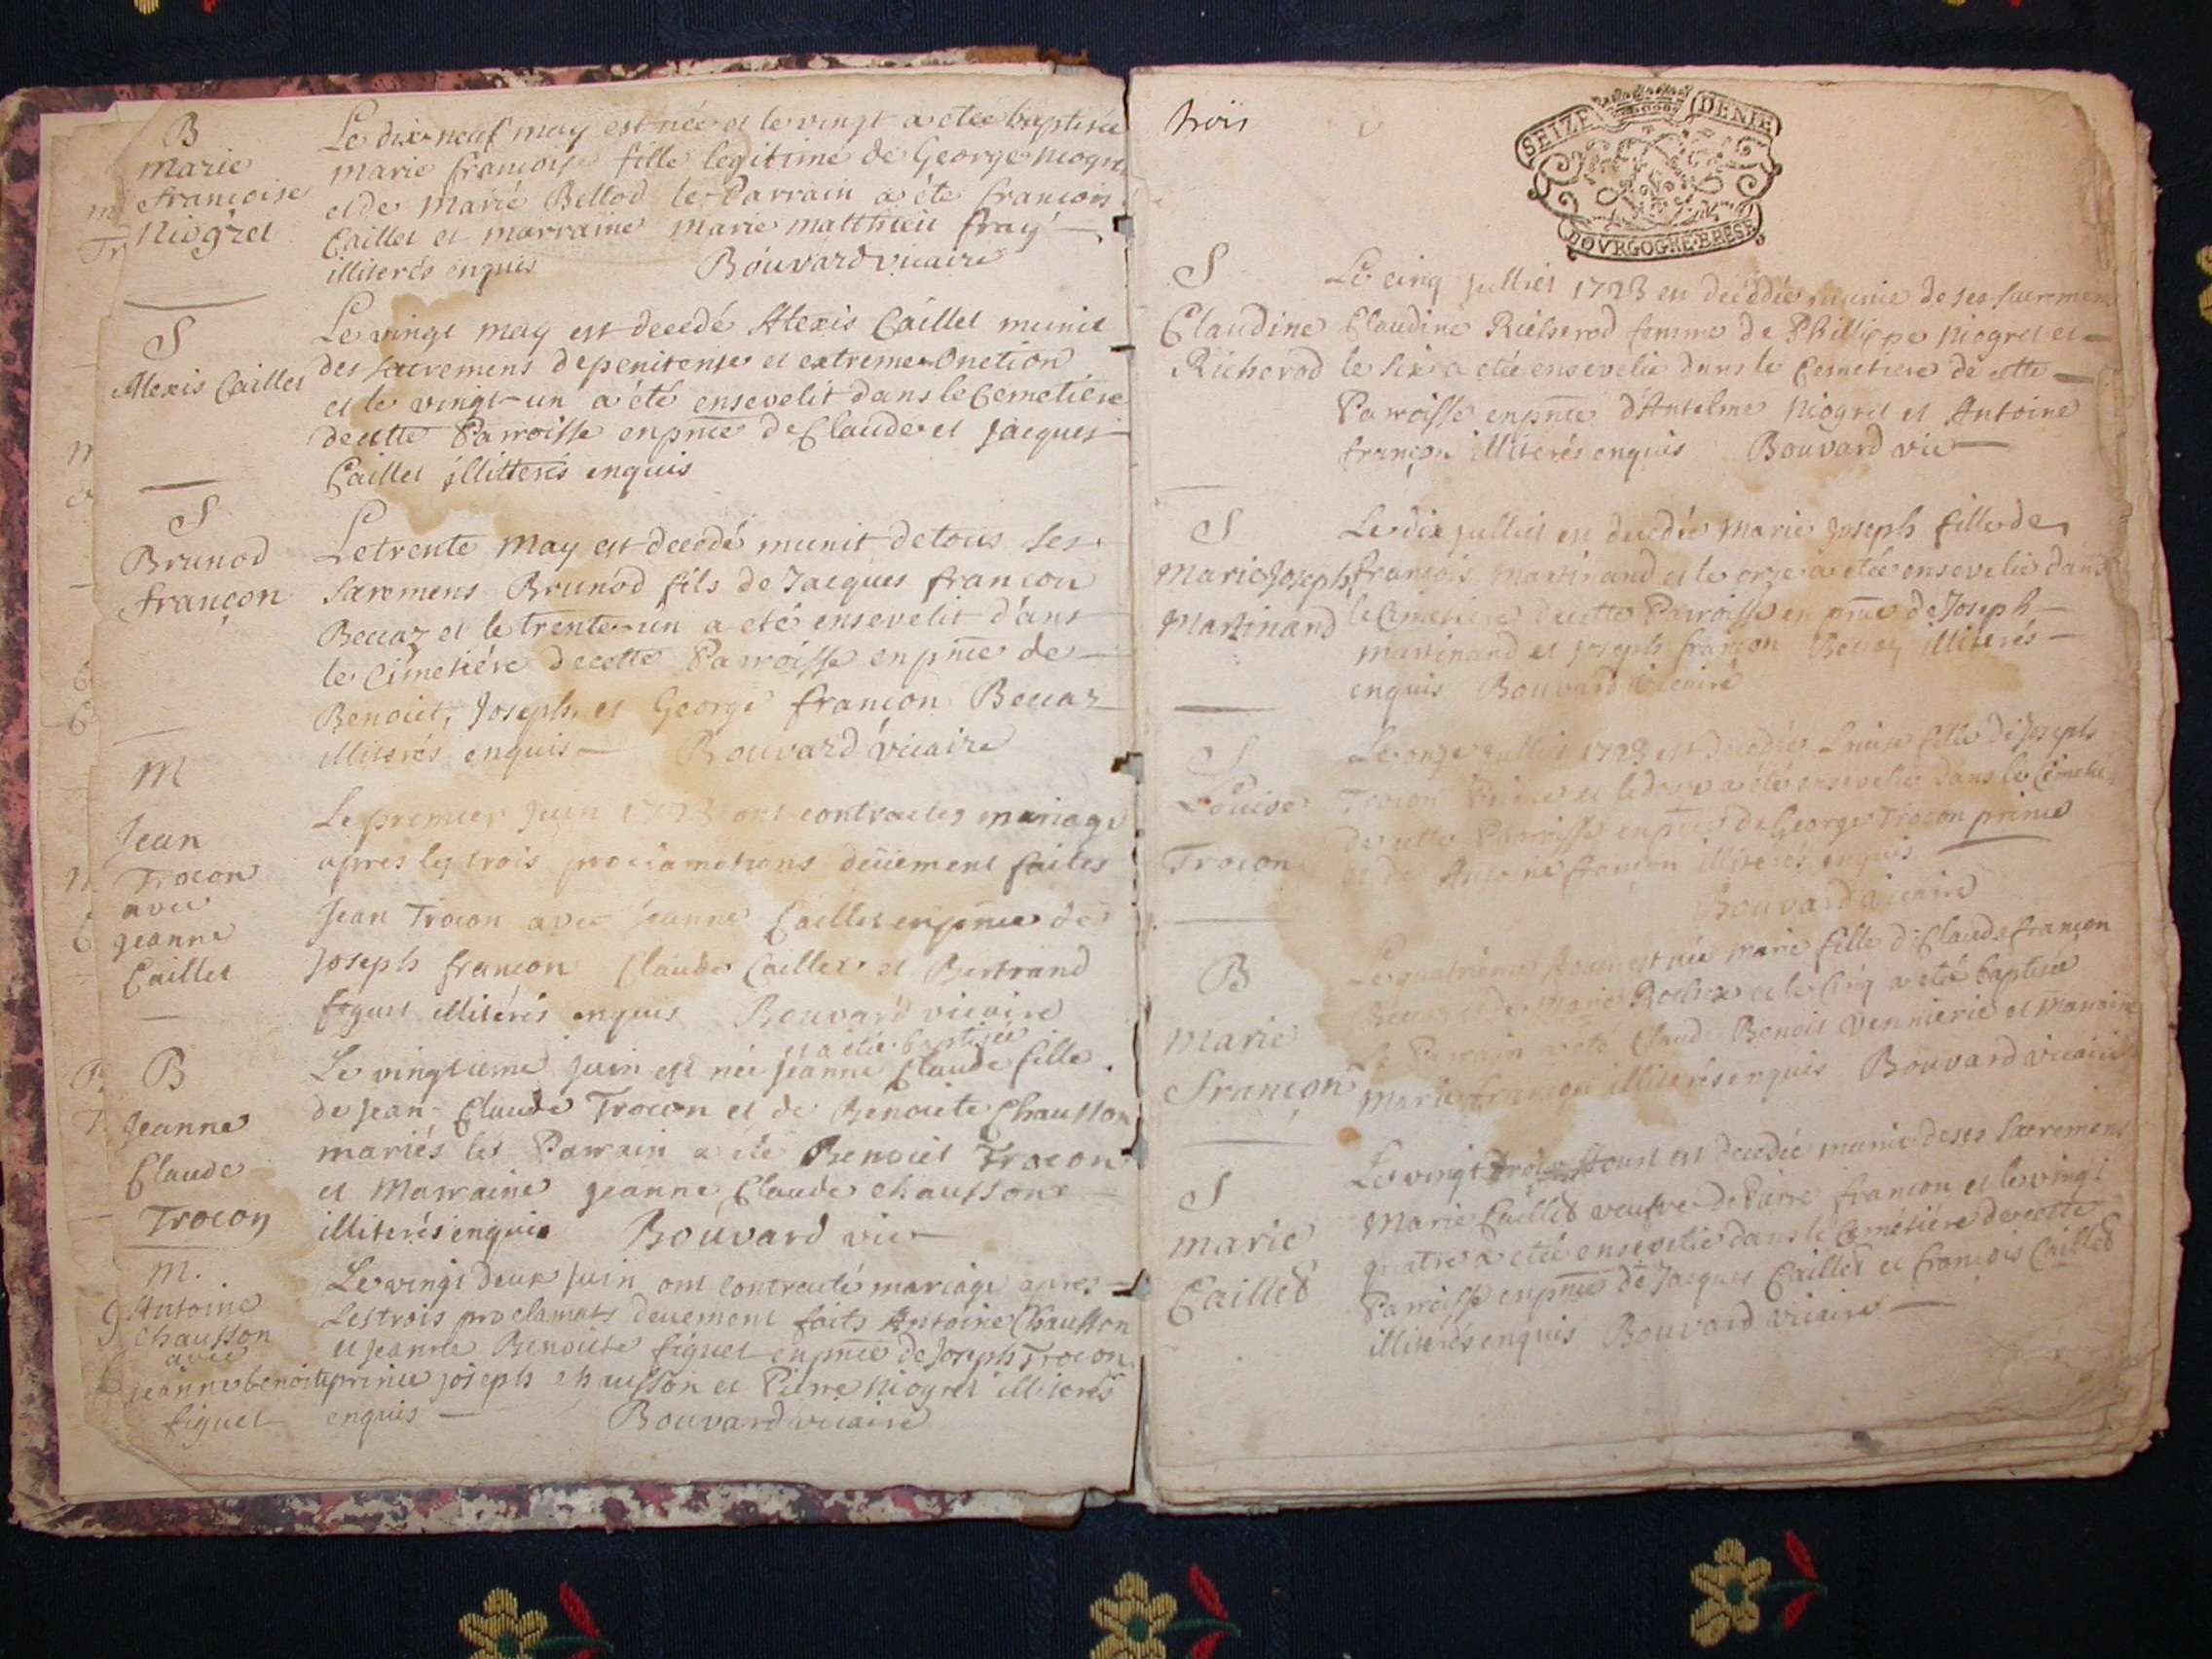 B
Marie
françoise
Niogret
Le dix neuf may est née et le vingt a etée baptisée
marie françoise fille legitime de George niogret
et de marie Bellod le Parrain a été francois
Caillet et marraine marie matthieu fray
illiterés enquis Bouvard vicaire
S
Alexis Caillet
Le vingt may est decedé Alexis Caillet munit
des sacremens de penitense et extreme Onction
et le vingt-un a été ensevelit dans le Cemetiére
de cette Parroisse en pnce de Claude et Jacques
Caillet illitterés enquis
S
Brunod
françon
Le trente may est decedé munit de tous ses
sacremens Brunod fils de Jacques françon
Beccaz et le trente-un a eté ensevelit dans
le Cimetiére de cette Parroisse en pnce de
Benoict, Joseph, et George françon Beccaz
illiterés enquis Bouvard vicaire
M
Jean
Trocon
avec
jeanne
Caillet
Le premier Juin 1723 ont contractes mariage
apres les trois proclamations deüement faites
Jean Trocon avec Jeanne Caillet en pnce de
Joseph françon Claude Caillet et Bertrand
figuet illiterés enquis Bouvard vicaire
B
Jeanne
Claude
Trocon
et a etée baptisée
Le vingtieme juin est née jeanne Claude fille
de Jean-Claude Trocon et de Benoite Chausson
mariés les Parrain a été Benoict Trocon
et Marraine jeanne Claude chausson
illiterés enquis Bouvard vic
M.
Antoine
Chausson
avec
jeanne benoite
figuet
Le vingt deux Juin ont contracté mariage apres
les trois proclamats deuement faits Antoine Chausson
et jeanne Benoite figuet en pnce de Joseph Trocon
prince joseph chausson et Pierre Niogret illiterés
enquis Bouvard vicaire
trois
SEIZE DENIE
BOVRGOGNE·BRESE
S
Claudine
Richerod
Le cinq Julliet 1723 est decedée munie de ses sacremens
Claudine Richerod femme de Phillippe niogret et
le six a etée ensevelie dans le Cemetiere de cette
Parroisse en pnce d'Antelme Niogret et Antoine
françon illiterés enquis Bouvard vic
S
Marie Joseph
Martinand
Le dix julliet est decedée Marie Joseph fille de
françois Martinand et le onze a etée ensevelie dans
le Cimetiere de cette Parroisse en pnce de Joseph
martinand et joseph françon Beccaz illiterés
enquis Bouvard vicaire
S
Louise
Trocon
Le onze julliet 1723 est decedée Louise fille de Joseph
Trocon Prince et le douze a été ensevelie dans le Cimetie
de cette Parroisse en pnce de George Trocon prince
et de Antoine françon illiterés enquis
Bouvard vicaire
B
Marie
françon
Le quatrieme Aoust est née marie fille de Claude françon
Beccaz et de Marie Rochex et le Cinq a etée baptisée
le Parrain a été Claude Benoit Vennierie et Marraine
Marie françon illiterés enquis Bouvard vicaire
S
Marie
Caillet
Le vingt trois Aoust est decedée munie de ses sacremens
Marie Caillet veufve de Pierre françon et le vingt
quatre a etée ensevelie dans le Cemétiére de cette
Parroisse en pnce de Jacques Caillet et françois Caillet
illiterés enquis Bouvard vicaire